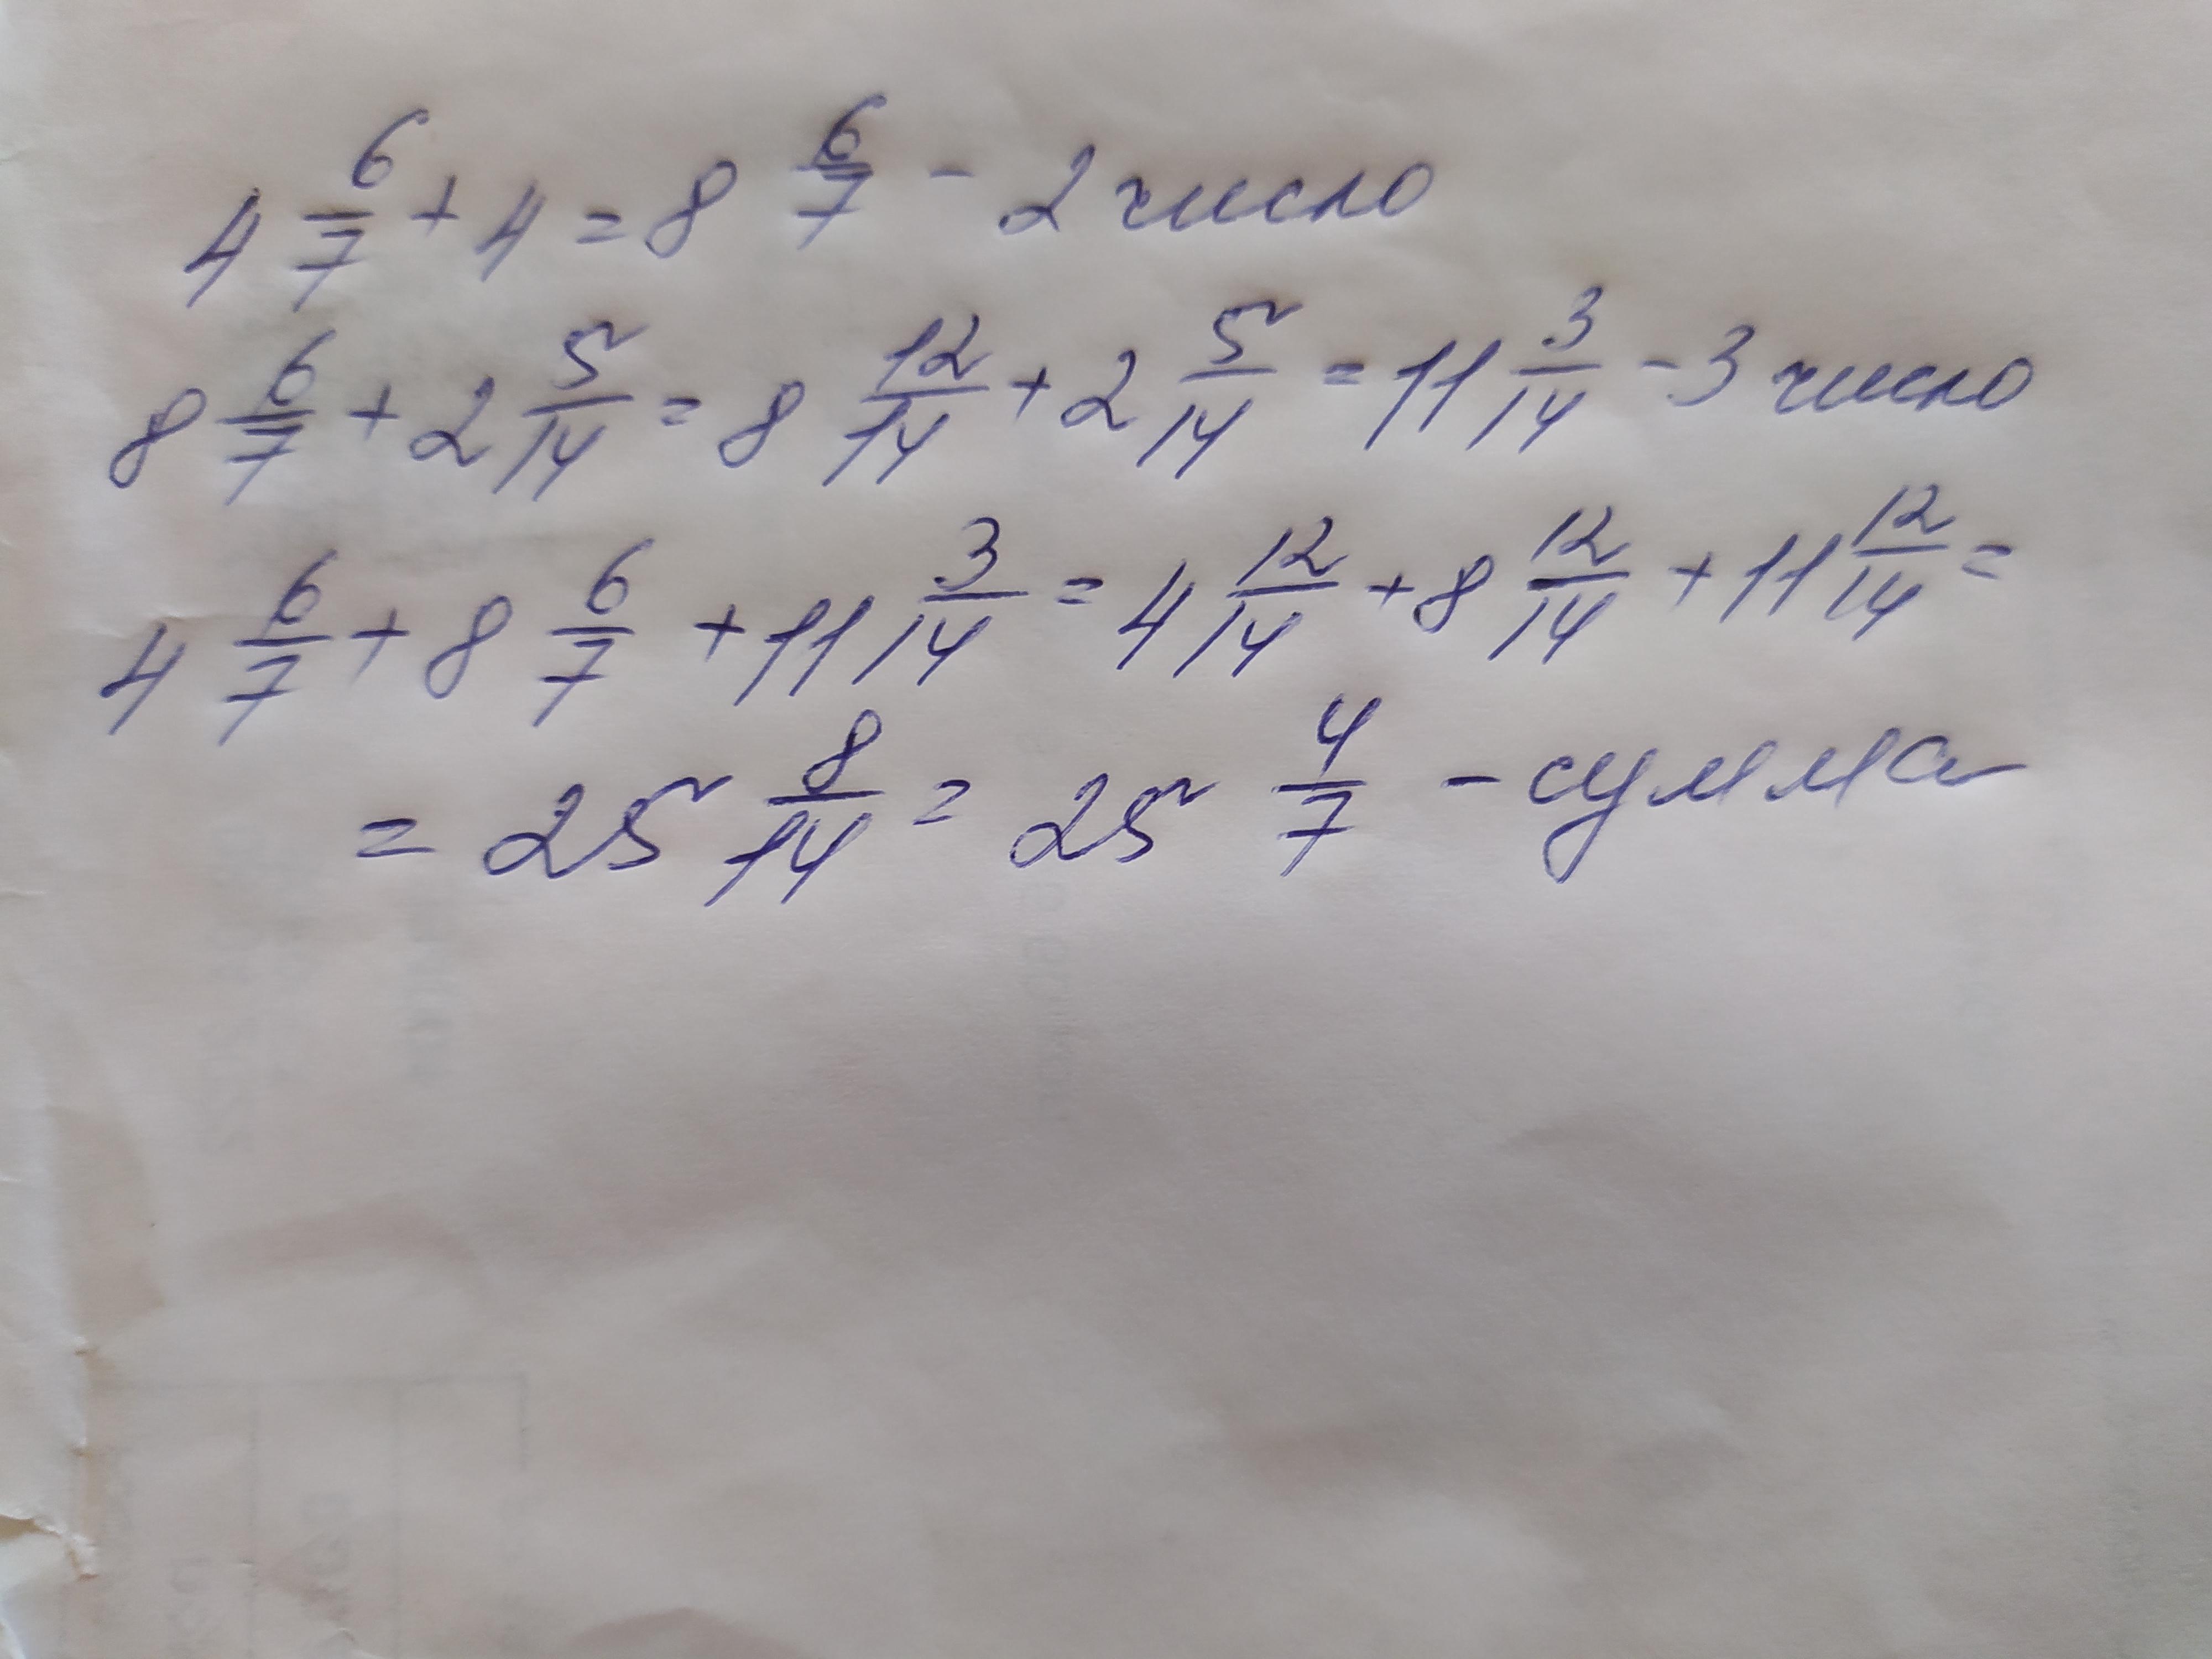 4 6/7 + 4 = 8 6/7 - 2 число
8 6/7 + 2 5/14 = 8 12/14 + 2 5/14 = 11 3/14 - 3 число
4 6/7 + 8 6/7 + 11 3/14 = 4 12/14 + 8 12/14 + 11 12/14 =
= 25 8/14 = 25 4/7 - сумма